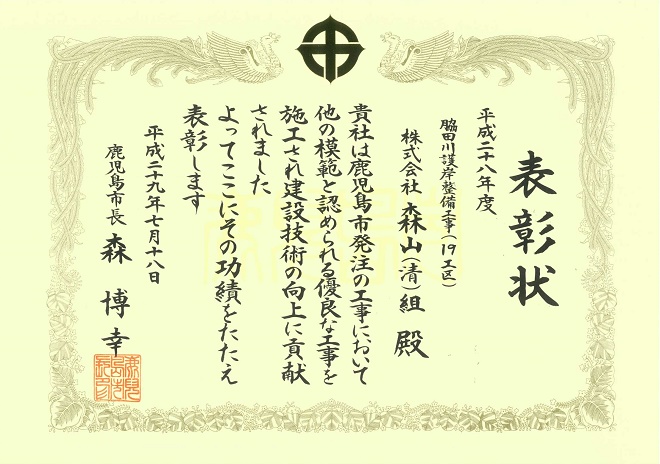 表彰状
平成二十八年度
脇田川護岸整備工事(19工区)
株式会社 森山(清)組 殿
貴社は鹿児島市発注の工事において
他の模範と認められる優良な工事を
施工され建設技術の向上に貢献
されました
よってここにその功績をたたえ
表彰します
平成二十九年七月十八日
鹿児島市長 森 博幸